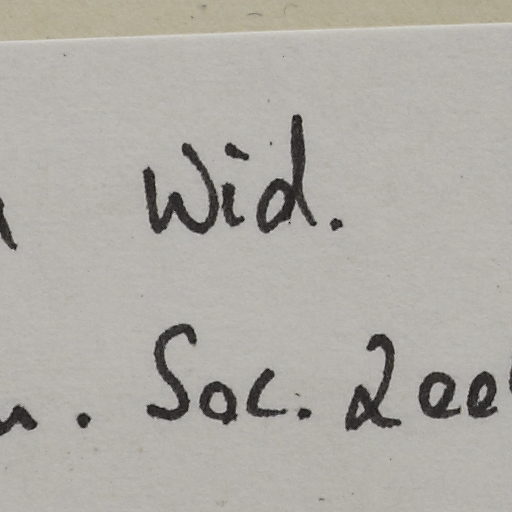 Wid.
. Soc. Zool